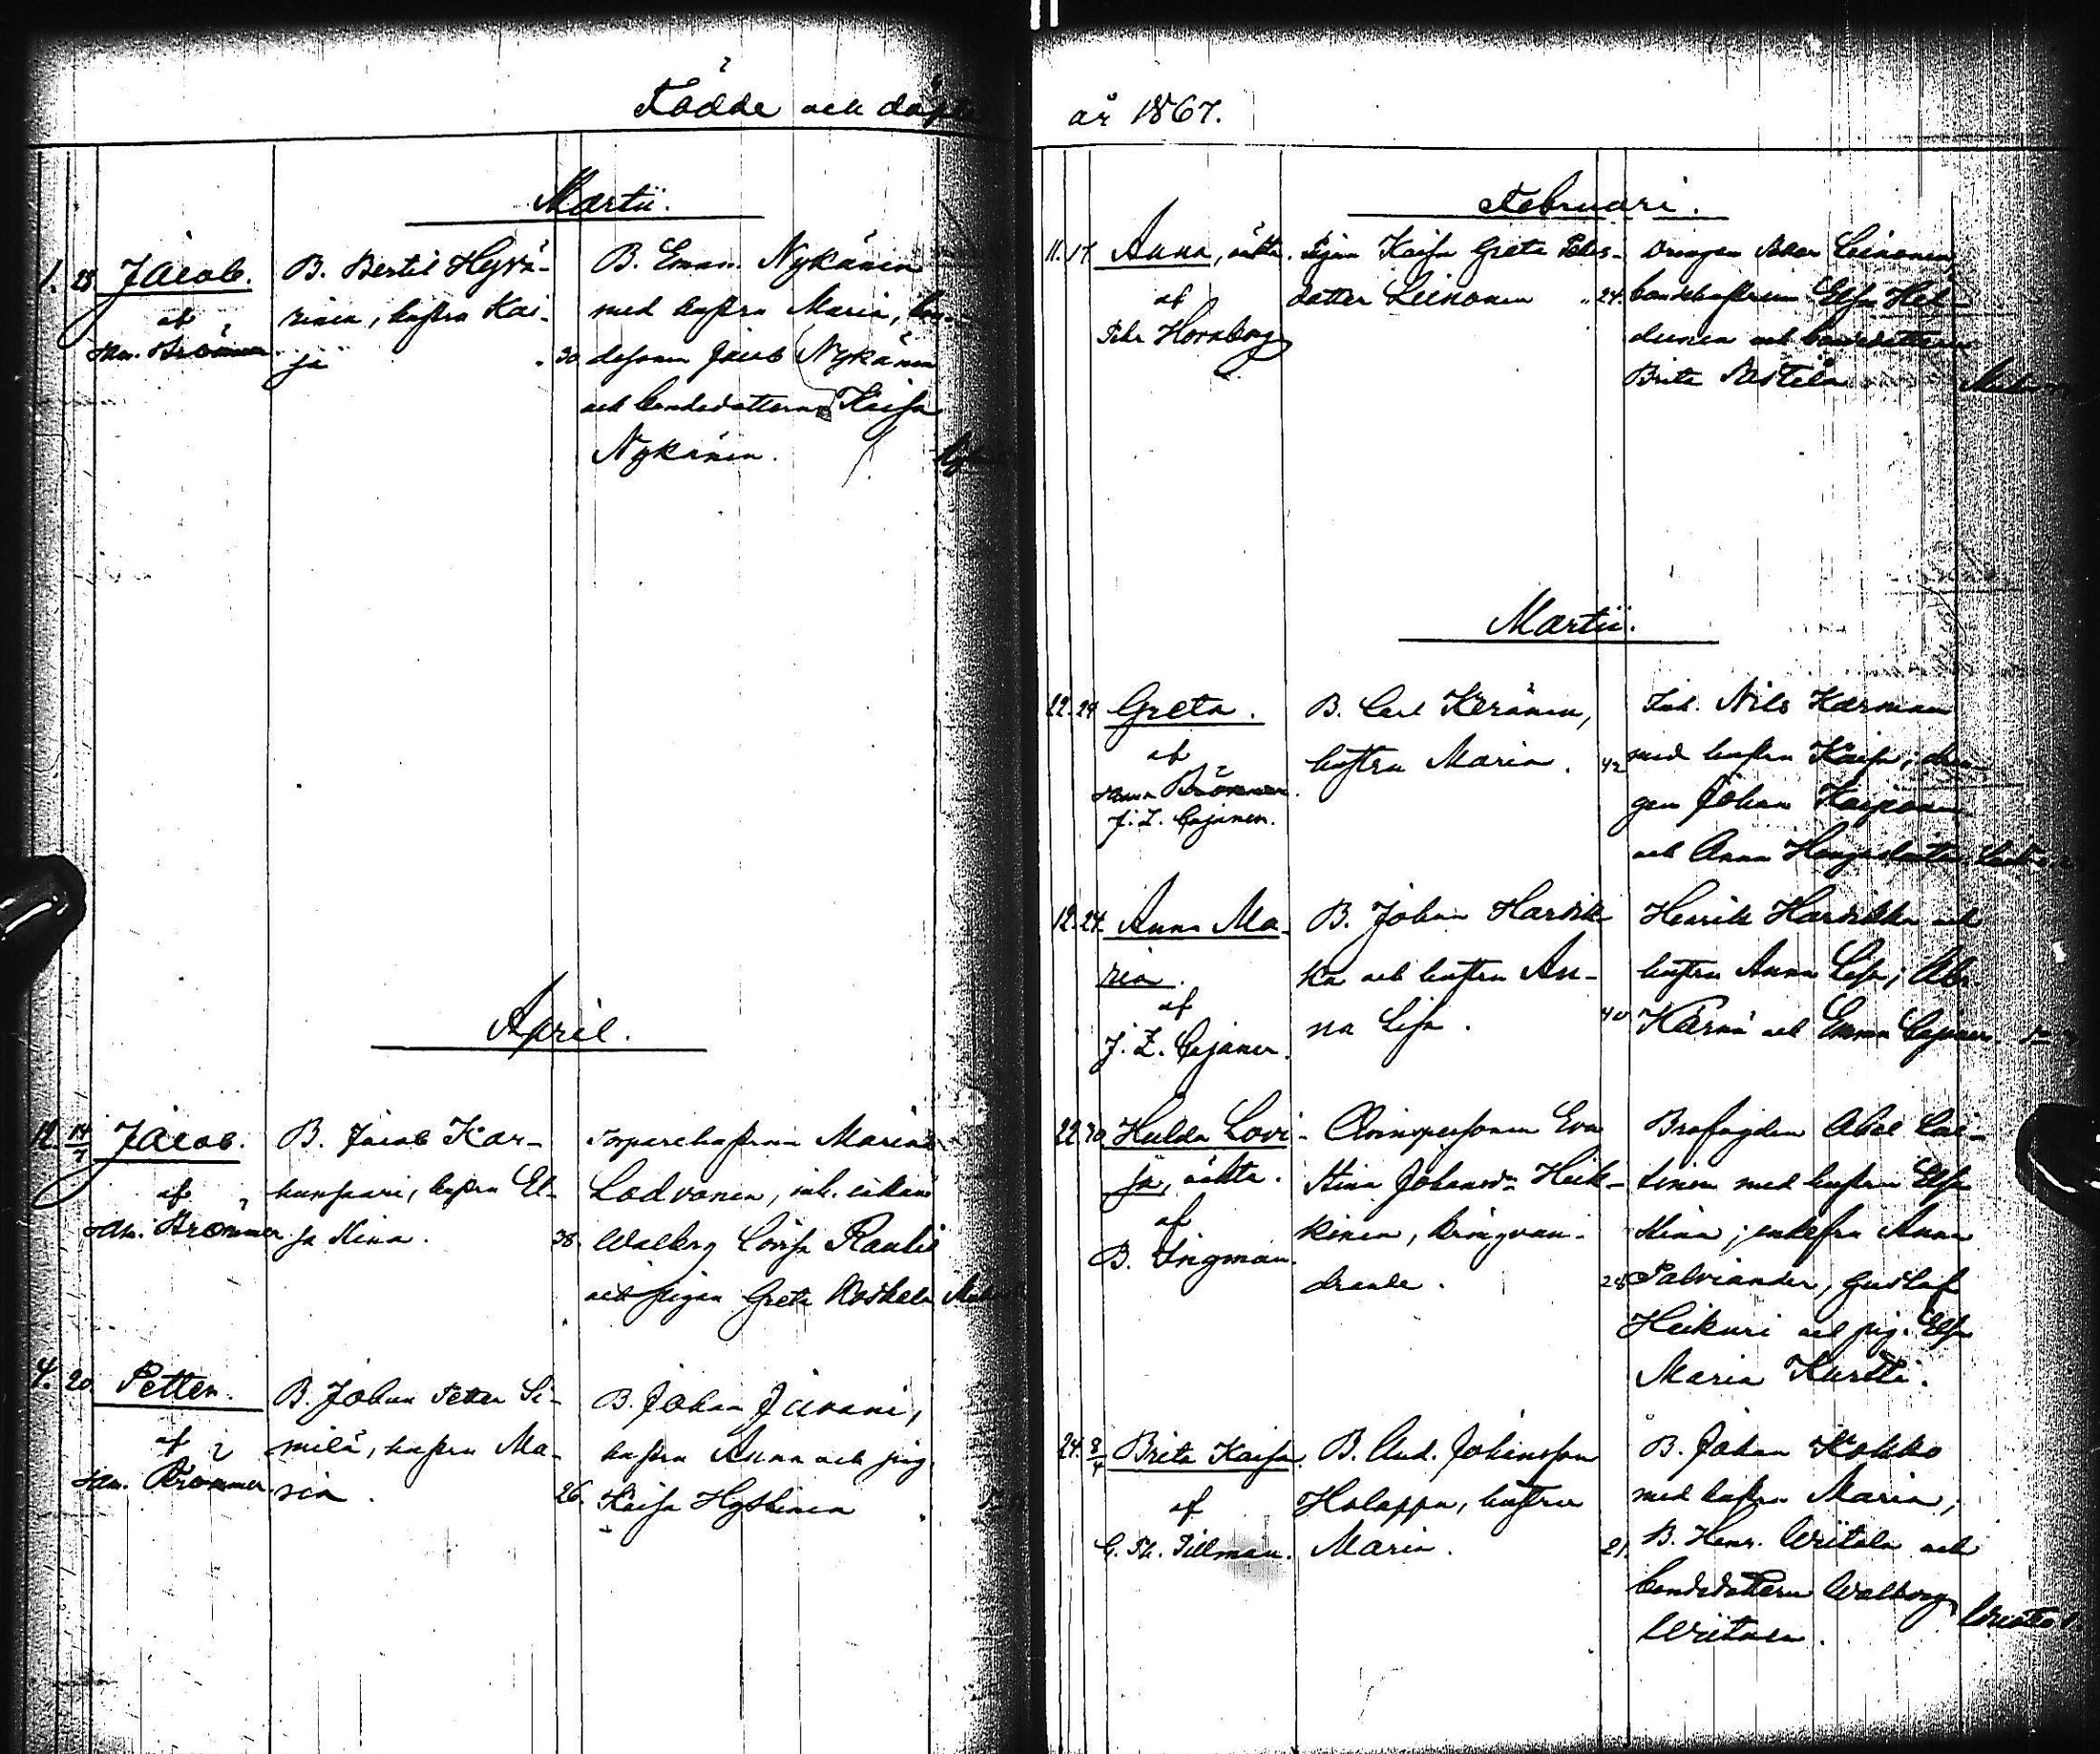 Födde och döpte
Martii.
1. 23 Jacob.
af
Hm. Brommer
B. Bertil Hyvä-
rinen, hustru Kai-
sa
30
B. Eman. Nykänen
med hustru Maria, bon-
desonen Jacob Nykänen
och bondedottern Kaisa
Nykänen.
April.
12. 14/7 Jacob.
af
Hm. Brommer
B. Jacob Kar-
hunsaari, hustru El-
sa Stina.
38.
Torparehustrun Maria
Lodvonen, inh. enkan
Walborg Lovisa Rautio
och pigan Greta Koskela
4. 20 Petter.
af
Hm. Brommer
B. Johan Petter Si-
milä, hustru Ma-
ria.
26.
B. Johan Juvani,
hustru Anna och pig.
Kaisa Hyttinen
år 1867.
Februari.
11. 17 Anna, oäkta.
af
Petr Hornborg
Pigan Kaisa Greta Peters-
dotter Leinonen
24.
Drengen Peter Leinonen,
bondehustrun Elsa Hel-
dunen och bondedottern
Brita
Martii.
12. 24 Greta.
af
Brommer.
J. Z. Cajaner.
B. Carl Keränen,
hustru Maria.
42
Inh. Nils Karman
med hustru Kaisa; dren-
gen Johan Karjonen
och Anna
12. 24. Anna Ma-
ria.
af
J. Z. Cajaner.
B. Johan Hardik-
ka och hustru An-
na Lisa.
40
Henrik Hardikka och
hustru Anna Lisa; Abr.
Kärnä och Emma Cajaner
22. 30 Hulda Lovi-
sa, oäkta.
af
B. Ingman.
Qvinspersonen Eva
Stina Johansdr Heik-
kinen, kringvan-
drande.
28
Brofogden Abel Lai-
tinen med hustru Elsa
Stina; enkefru Anna
Salviander, Gustaf
Heikuri och pig. Elsa
Maria Kurtti.
24. 8/4 Brita Kaisa.
af
G. Th. Tillman.
B. And. Johansson
Holappa, hustru
Maria.
21.
B. Johan Kokko
med hustru Maria;
B. Henr. Wiitala och
bondedottern Walborg
Wiitala.